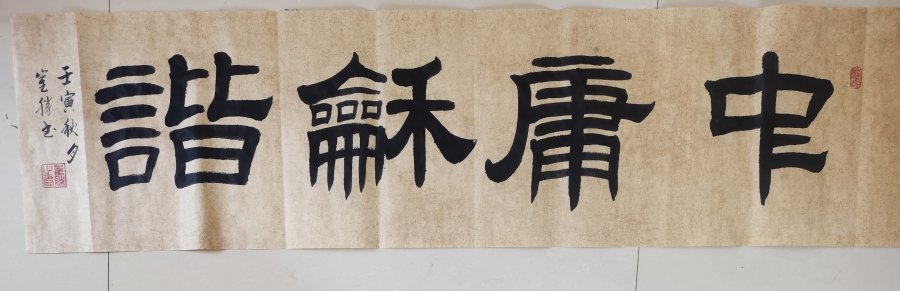 中庸龢諧
壬寅秋夕
勝书